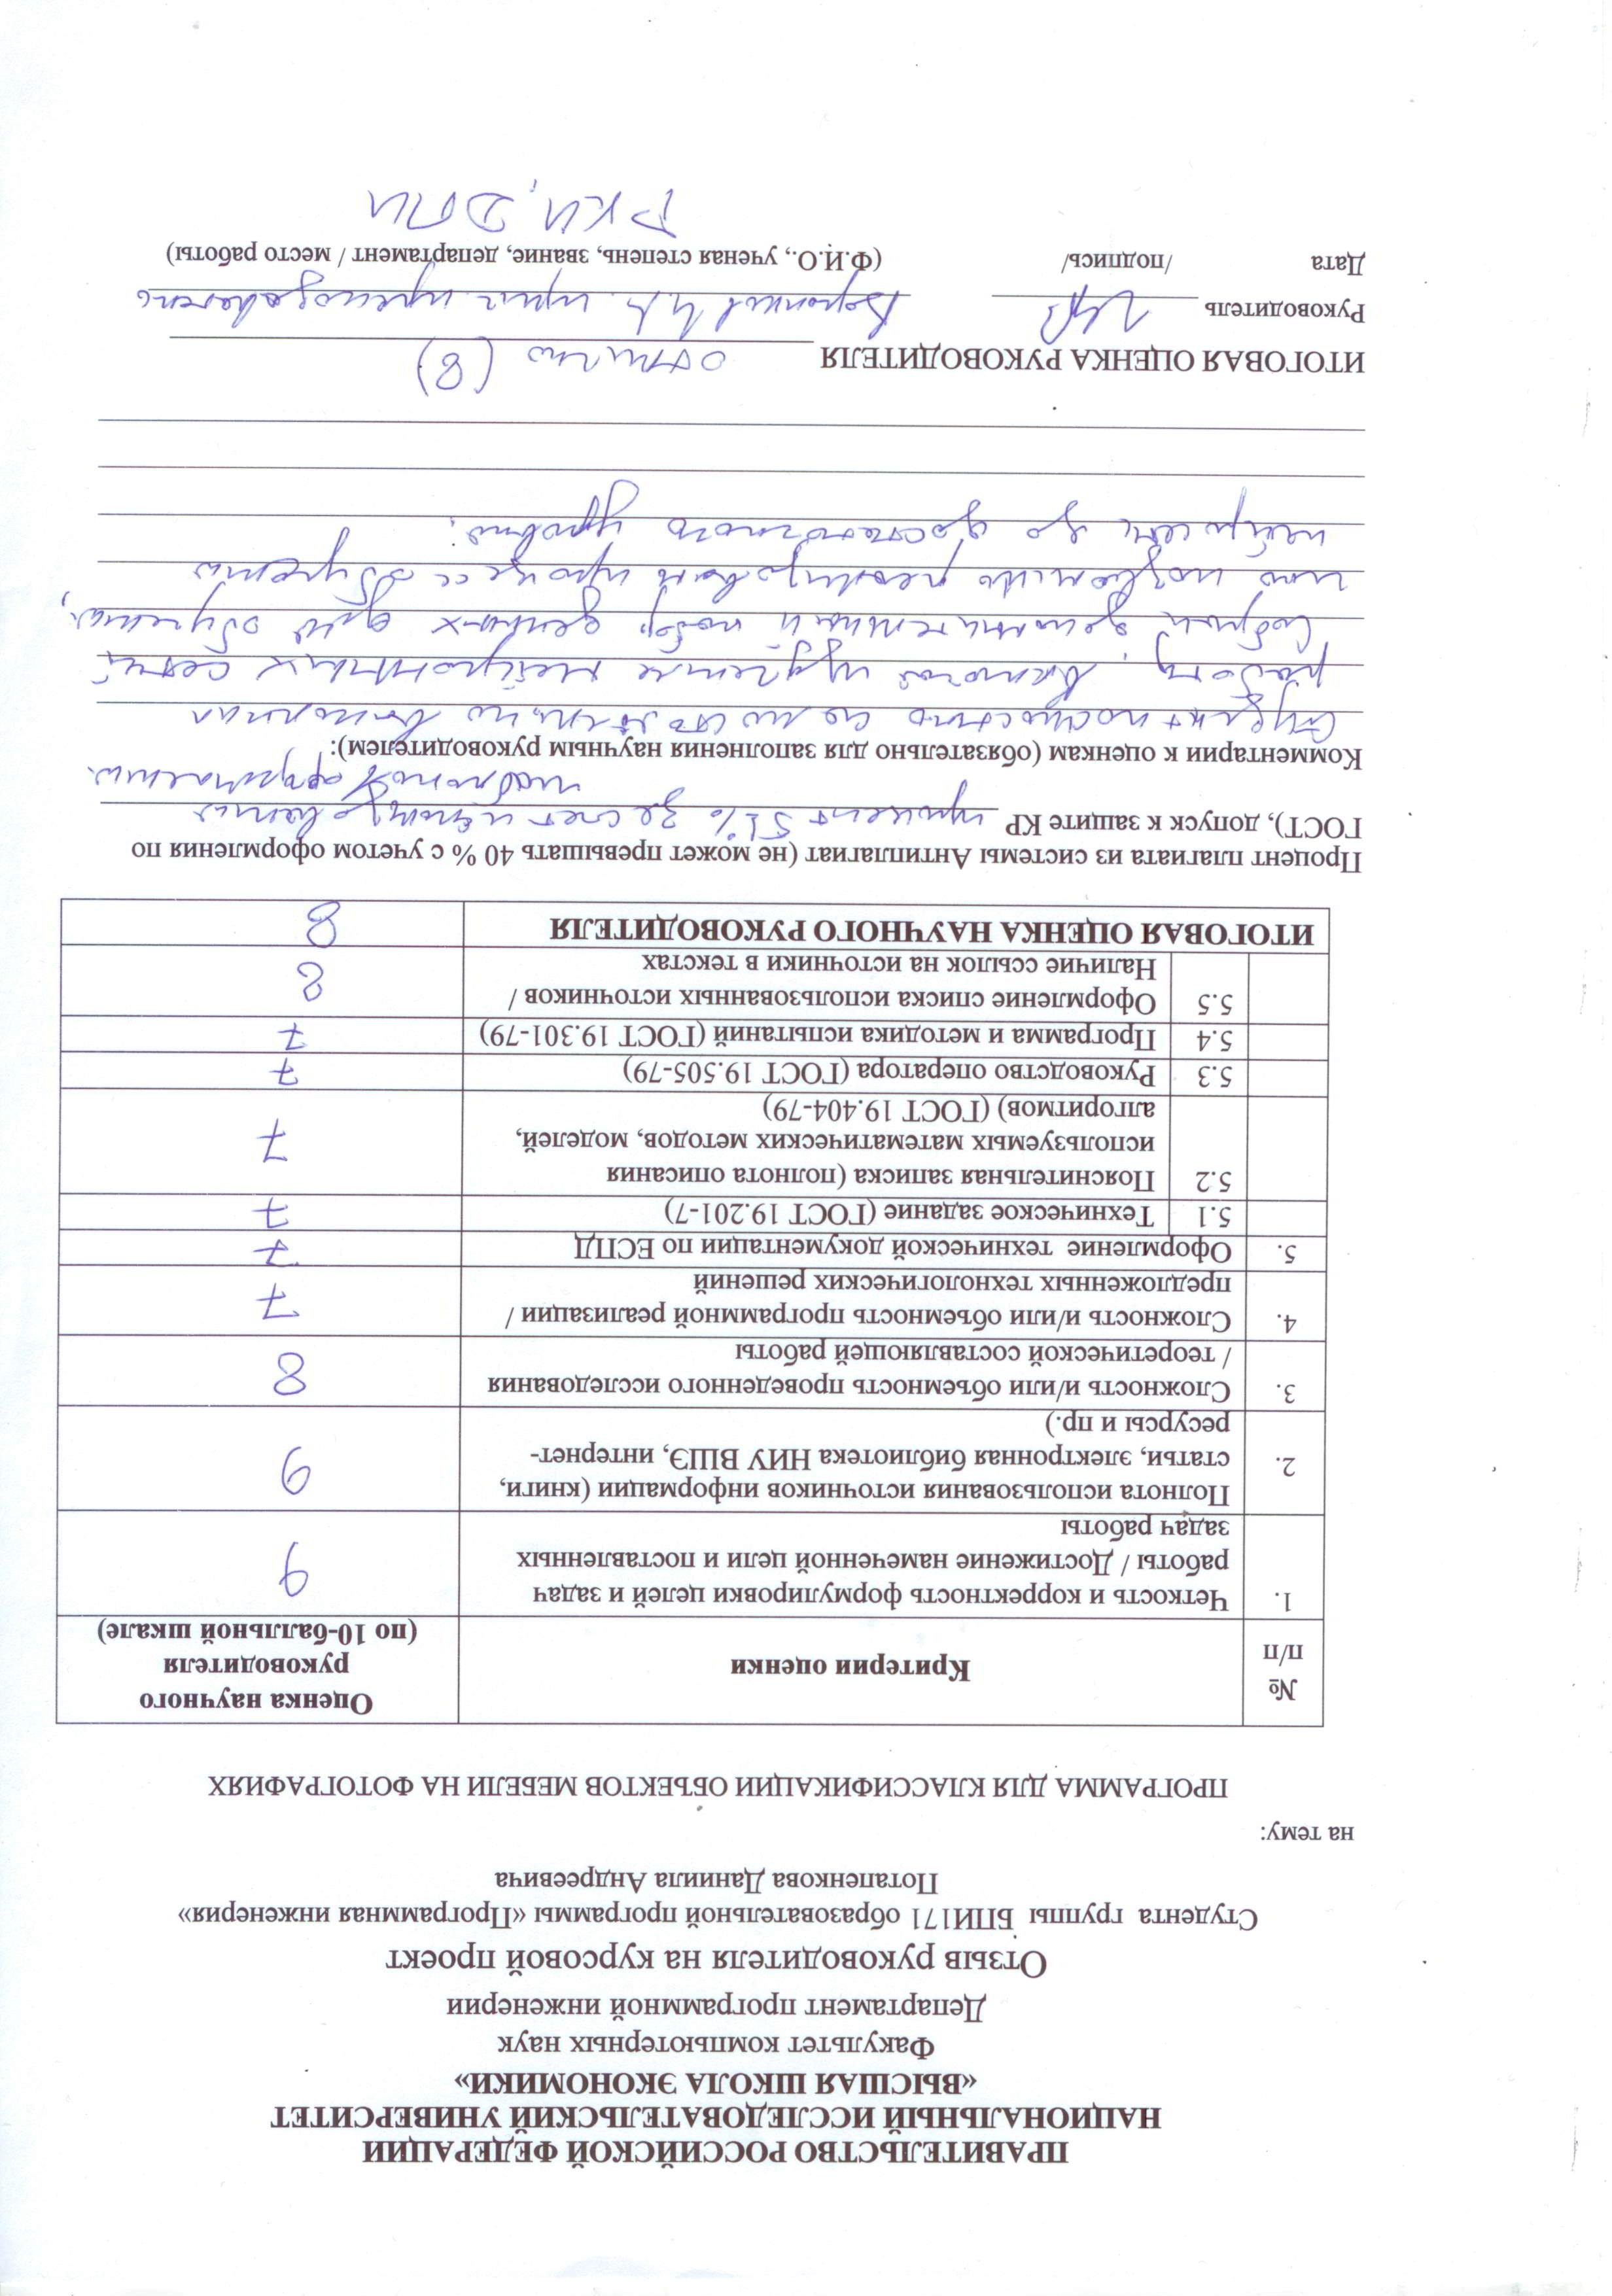 ПРАВИТЕЛЬСТВО РОССИЙСКОЙ ФЕДЕРАЦИИ
НАЦИОНАЛЬНЫЙ ИССЛЕДОВАТЕЛЬСКИЙ УНИВЕРСИТЕТ
«ВЫСШАЯ ШКОЛА ЭКОНОМИКИ»
Факультет компьютерных наук
Департамент программной инженерии
Отзыв руководителя на курсовой проект
Студента группы БПИ171 образовательной программы «Программная инженерия»
Потапенкова Даниила Андреевича
на тему:
ПРОГРАММА ДЛЯ КЛАССИФИКАЦИИ ОБЪЕКТОВ МЕБЕЛИ НА ФОТОГРАФИЯХ
№ п/п
Критерии оценки
Оценка научного
руководителя
(по 10-балльной шкале)
1. Четкость и корректность формулировки целей и задач
работы / Достижение намеченной цели и поставленных
задач работы
9
2. Полнота использования источников информации (книги,
статьи, электронная библиотека НИУ ВШЭ, интернет-
ресурсы и пр.)
9
3. Сложность и/или объемность проведенного исследования
/ теоретической составляющей работы
8
4. Сложность и/или объемность программной реализации /
предложенных технологических решений
7
5. Оформление технической документации по ЕСПД 7
5.1 Техническое задание (ГОСТ 19.201-7) 7
5.2 Пояснительная записка (полнота описания
используемых математических методов, моделей,
алгоритмов) (ГОСТ 19.404-79)
7
5.3 Руководство оператора (ГОСТ 19.505-79) 7
5.4 Программа и методика испытаний (ГОСТ 19.301-79) 7
5.5 Оформление списка использованных источников /
Наличие ссылок на источники в текстах
8
ИТОГОВАЯ ОЦЕНКА НАУЧНОГО РУКОВОДИТЕЛЯ 8
Процент плагиата из системы Антиплагиат (не может превышать 40 % с учетом оформления по
ГОСТ), допуск к защите КР процент 51% за счет использования
Комментарии к оценкам (обязательно для заполнения научным руководителем):
Студент полностью самостоятельно выполнил
работу, включая изучение нейронных сетей
Собран дополнительный набор данных для обучения,
что позволило реализовать процесс обучения
нейросети до достаточного уровня.
ИТОГОВАЯ ОЦЕНКА РУКОВОДИТЕЛЯ отлично (8)
Руководитель
преподаватель
Дата /подпись/ (Ф.И.О., ученая степень, звание, департамент / место работы)
ФКН, ДПИ